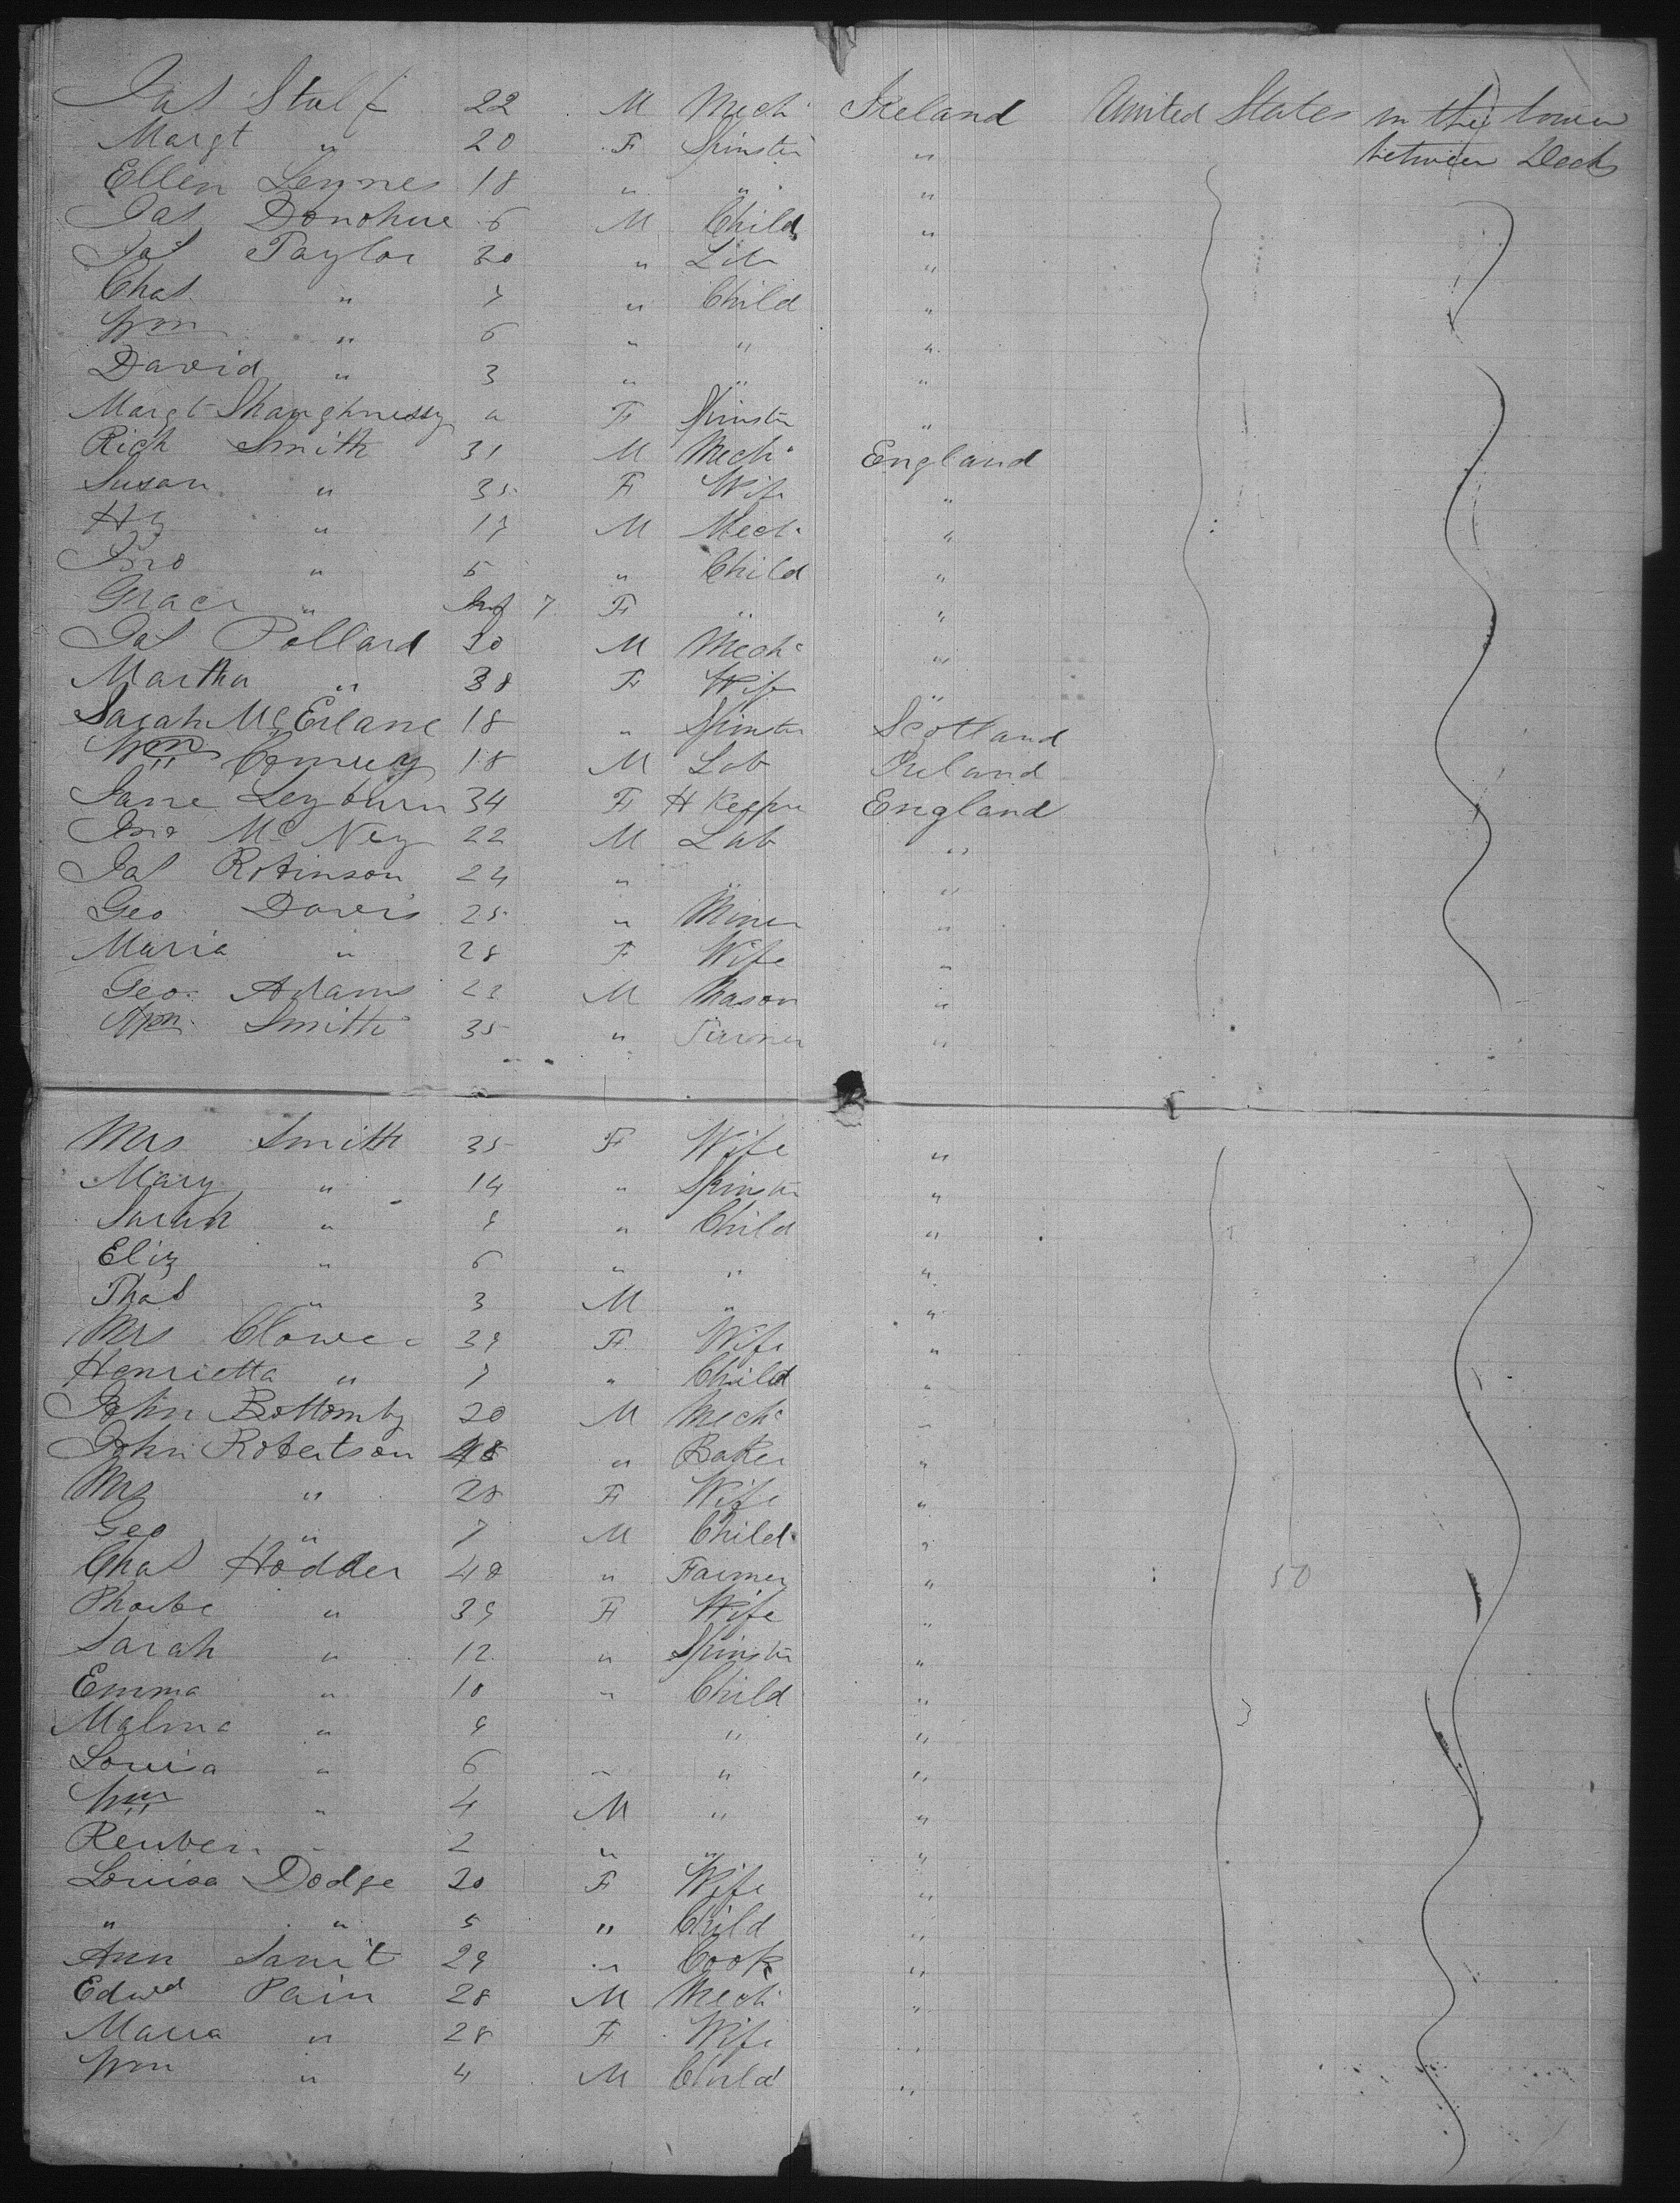 Jas Stulf 22 M Mech Ireland United States in the lower
Margt " 20 F Spinster " between Decks
Ellen Leynes 18 " " "
Jas Donohue 6 M Child "
Jas Taylor 30 " Lab "
Chas " 7 " Child "
Wm " 6 " " "
David " 3 " " "
Margt Shaughnessy " F Spinster "
Rich Smith 31 M Mech England
Susan " 35 F Wife "
Hy " 17 M Mech "
Jno " 5 " Child "
Grace " Inf 7 F " "
Jas Pollard 30 M Mech "
Martha " 38 F Wife "
Sarah McErlane 18 " Spinster Scotland
Wm 18 M Lab Ireland
Jane Leyburn 34 F H Keeper England
Jno McNey 22 M Lab "
Jas Robinson 24 " " "
Geo Davis 25 " Miner "
Maria " 28 F Wife "
Geo. Adams 23 M Mason "
Wm Smith 35 " "
Mrs Smith 35 F Wife "
Mary " 14 " Spinster "
Sarah " 9 " Child "
Eliz " 6 " " "
Thas " 3 M " "
Mrs Clower 39 F Wife "
Henrietta " 7 " Child "
John Bottomly 20 M Mech "
John Robertson 48 " Baker "
Mrs " 28 F Wife "
Geo " 7 M Child "
Chas Hodder 40 " Farmer " 50
Phoebe " 39 F Wife "
Sarah " 12 " Spinster "
Emma " 10 " Child "
Malma " 9 " "
Louisa " 6 " " "
Wm " 4 M " "
Reuben " 2 " " "
Louisa Dodge 20 F Wife "
" " 5 " Child "
Ann 29 " Cook "
Edwd Pain 28 M Mech "
Maria " 28 F Wife "
Wm " 4 M Child "